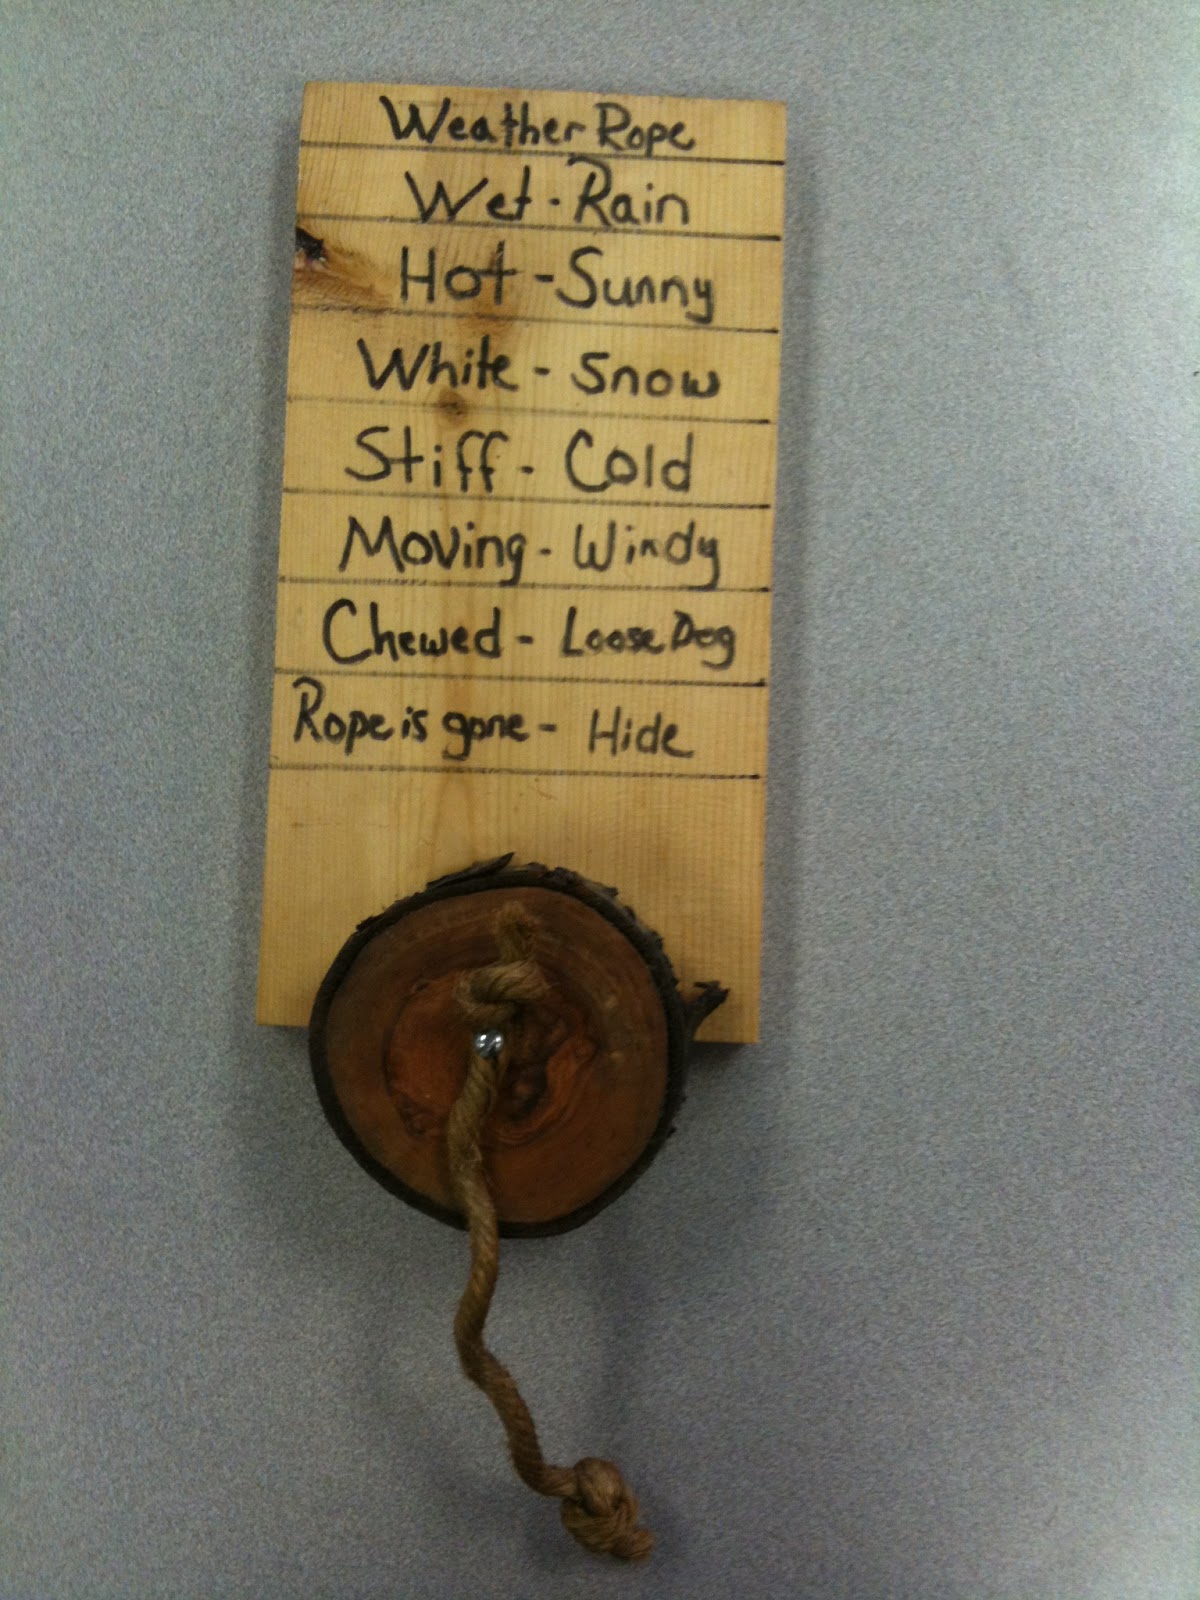 Weather Rope
Wet - Rain
Hot - Sunny
White - Snow
Stiff - Cold
Moving - Windy
Chewed - Loose Dog
Rope is gone - Hide